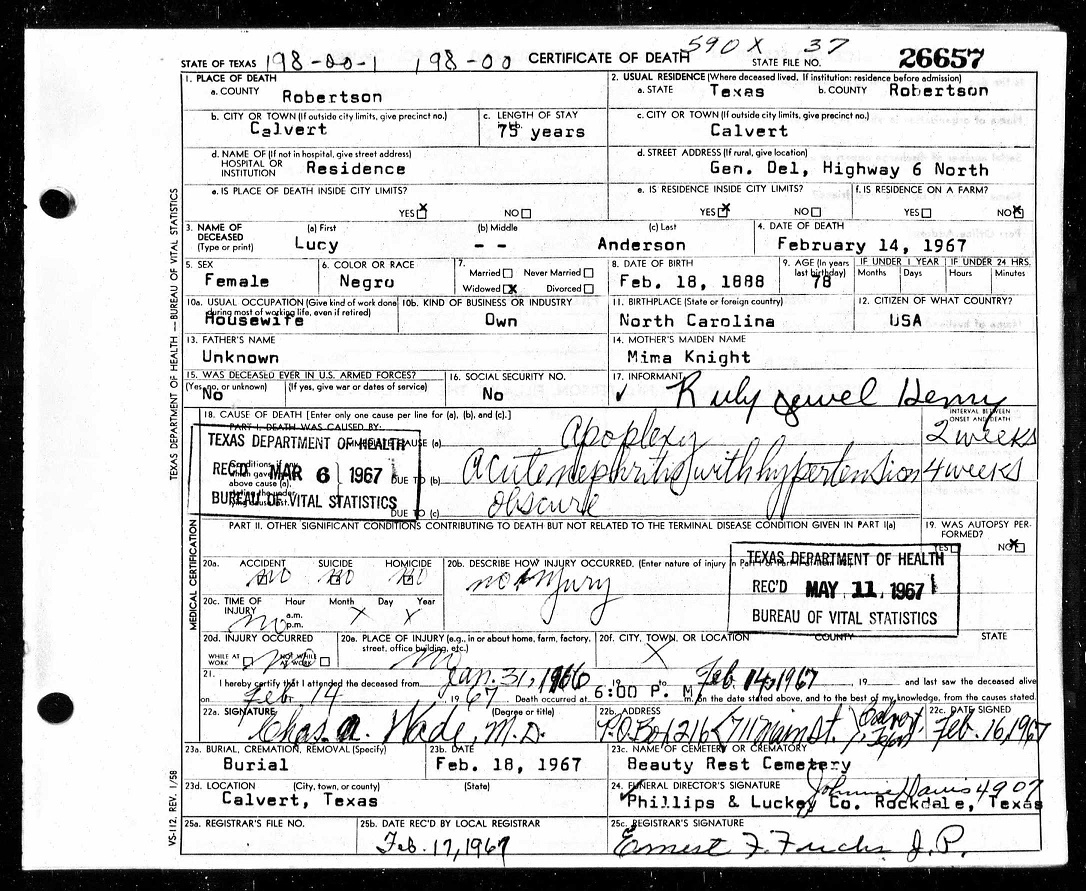 STATE OF TEXAS 198-00-1 198-00 CERTIFICATE OF DEATH 590X 37 STATE FILE NO. 26657
TEXAS DEPARTMENT OF HEALTH — BUREAU OF VITAL STATISTICS
VS-112. REV. 1/58
1. PLACE OF DEATH
a. COUNTY Robertson
2. USUAL RESIDENCE (Where deceased lived. If institution: residence before admission)
a. STATE Texas b. COUNTY Robertson
b. CITY OR TOWN (If outside city limits, give precinct no.)
Calvert
c. LENGTH OF STAY
75 years
c. CITY OR TOWN (If outside city limits, give precinct no.)
Calvert
d. NAME OF (If not in hospital, give street address)
HOSPITAL OR
INSTITUTION Residence
d. STREET ADDRESS (If rural, give location)
Gen. Del, Highway 6 North
e. IS PLACE OF DEATH INSIDE CITY LIMITS?
YES X NO
e. IS RESIDENCE INSIDE CITY LIMITS?
YES X NO
f. IS RESIDENCE ON A FARM?
YES NO X
3. NAME OF DECEASED (Type or print)
(a) First (b) Middle (c) Last
Lucy - - Anderson
4. DATE OF DEATH
February 14, 1967
5. SEX
Female
6. COLOR OR RACE
Negro
7.
Married Never Married
Widowed X Divorced
8. DATE OF BIRTH
Feb. 18, 1888
9. AGE (In years last birthday)
78
IF UNDER 1 YEAR
Months Days
IF UNDER 24 HRS.
Hours Minutes
10a. USUAL OCCUPATION (Give kind of work done
during most of working life, even if retired)
Housewife
10b. KIND OF BUSINESS OR INDUSTRY
Own
11. BIRTHPLACE (State or foreign country)
North Carolina
12. CITIZEN OF WHAT COUNTRY?
USA
13. FATHER'S NAME
Unknown
14. MOTHER'S MAIDEN NAME
Mima Knight
15. WAS DECEASED EVER IN U.S. ARMED FORCES?
(Yes, no, or unknown) (If yes, give war or dates of service)
No
16. SOCIAL SECURITY NO.
No
17. INFORMANT
✓ Ruby Jewel Henry
18. CAUSE OF DEATH [Enter only one cause per line for (a), (b), and (c).]
INTERVAL BETWEEN
ONSET AND DEATH
PART I. DEATH WAS CAUSED BY:
IMMEDIATE CAUSE (a) apoplexy 2 weeks
Conditions, if any, which gave
above cause (a),
DUE TO (b) acute nephritis with hypertension 4 weeks
DUE TO (c) obscure
TEXAS DEPARTMENT OF HEALTH
REC'D MAR 6 1967
BUREAU OF VITAL STATISTICS
MEDICAL CERTIFICATION
PART II. OTHER SIGNIFICANT CONDITIONS CONTRIBUTING TO DEATH BUT NOT RELATED TO THE TERMINAL DISEASE CONDITION GIVEN IN PART I(a)
19. WAS AUTOPSY PERFORMED?
YES NO X
20a. ACCIDENT SUICIDE HOMICIDE
no no no
20b. DESCRIBE HOW INJURY OCCURRED. (Enter nature of injury in Part
no injury
TEXAS DEPARTMENT OF HEALTH
REC'D MAY 11 1967
BUREAU OF VITAL STATISTICS
20c. TIME OF INJURY Hour Month Day Year
a.m.
p.m.
no X X
20d. INJURY OCCURRED
WHILE AT WORK NOT WHILE AT WORK
no
20e. PLACE OF INJURY (e.g., in or about home, farm, factory,
street, office building, etc.)
no
20f. CITY, TOWN, OR LOCATION COUNTY STATE
X
21.
I hereby certify that I attended the deceased from Jan. 31, 1966 19 to Feb 14, 1967 19 and last saw the deceased alive
on Feb 14 1967 Death occurred at 6:00 P. M. on the date stated above, and to the best of my knowledge, from the causes stated.
22a. SIGNATURE (Degree or title)
Chas. A. Wade, M.D.
22b. ADDRESS
P.O. Box 1216 711 Main St. Calvert, Texas
22c. DATE SIGNED
Feb. 16, 1967
23a. BURIAL, CREMATION, REMOVAL (Specify)
Burial
23b. DATE
Feb. 18, 1967
23c. NAME OF CEMETERY OR CREMATORY
Beauty Rest Cemetery
23d. LOCATION (City, town, or county) (State)
Calvert, Texas
24. FUNERAL DIRECTOR'S SIGNATURE Johnnie Davis 4907
✓ Phillips & Luckey Co. Rockdale, Texas
25a. REGISTRAR'S FILE NO.
25b. DATE REC'D BY LOCAL REGISTRAR
Feb. 17, 1967
25c. REGISTRAR'S SIGNATURE
Ernest F. Fuchs J.P.